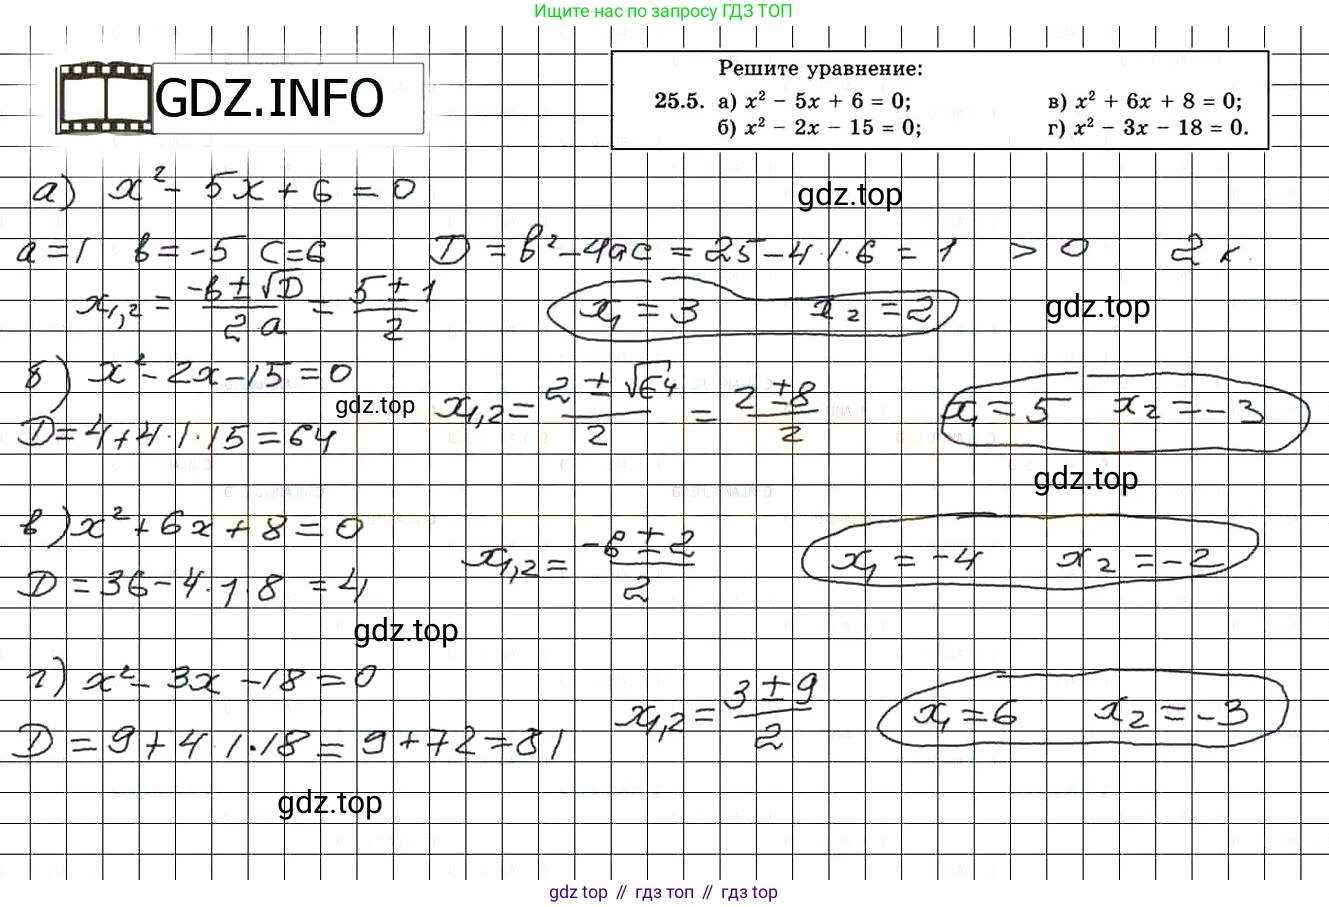 Ищите нас по запросу ГДЗ ТОП
GDZ.INFO
Решите уравнение:
25.5. а) x² − 5x + 6 = 0; в) x² + 6x + 8 = 0;
б) x² − 2x − 15 = 0; г) x² − 3x − 18 = 0.
а) x² − 5x + 6 = 0
gdz.top
a = 1 b = −5 c = 6 D = b² − 4ac = 25 − 4·1·6 = 1 > 0 2 к.
x₁,₂ = (−b ± √D)/(2a) = (5 ± 1)/2 x₁ = 3 x₂ = 2
gdz.top
б) x² − 2x − 15 = 0
D = 4 + 4·1·15 = 64 x₁,₂ = (2 ± √64)/2 = (2 ± 8)/2 x₁ = 5 x₂ = −3
gdz.top
gdz.top
в) x² + 6x + 8 = 0
D = 36 − 4·1·8 = 4 x₁,₂ = (−6 ± 2)/2 x₁ = −4 x₂ = −2
gdz.top
г) x² − 3x − 18 = 0
D = 9 + 4·1·18 = 9 + 72 = 81 x₁,₂ = (3 ± 9)/2 x₁ = 6 x₂ = −3
gdz.top
gdz top // гдз топ // гдз top